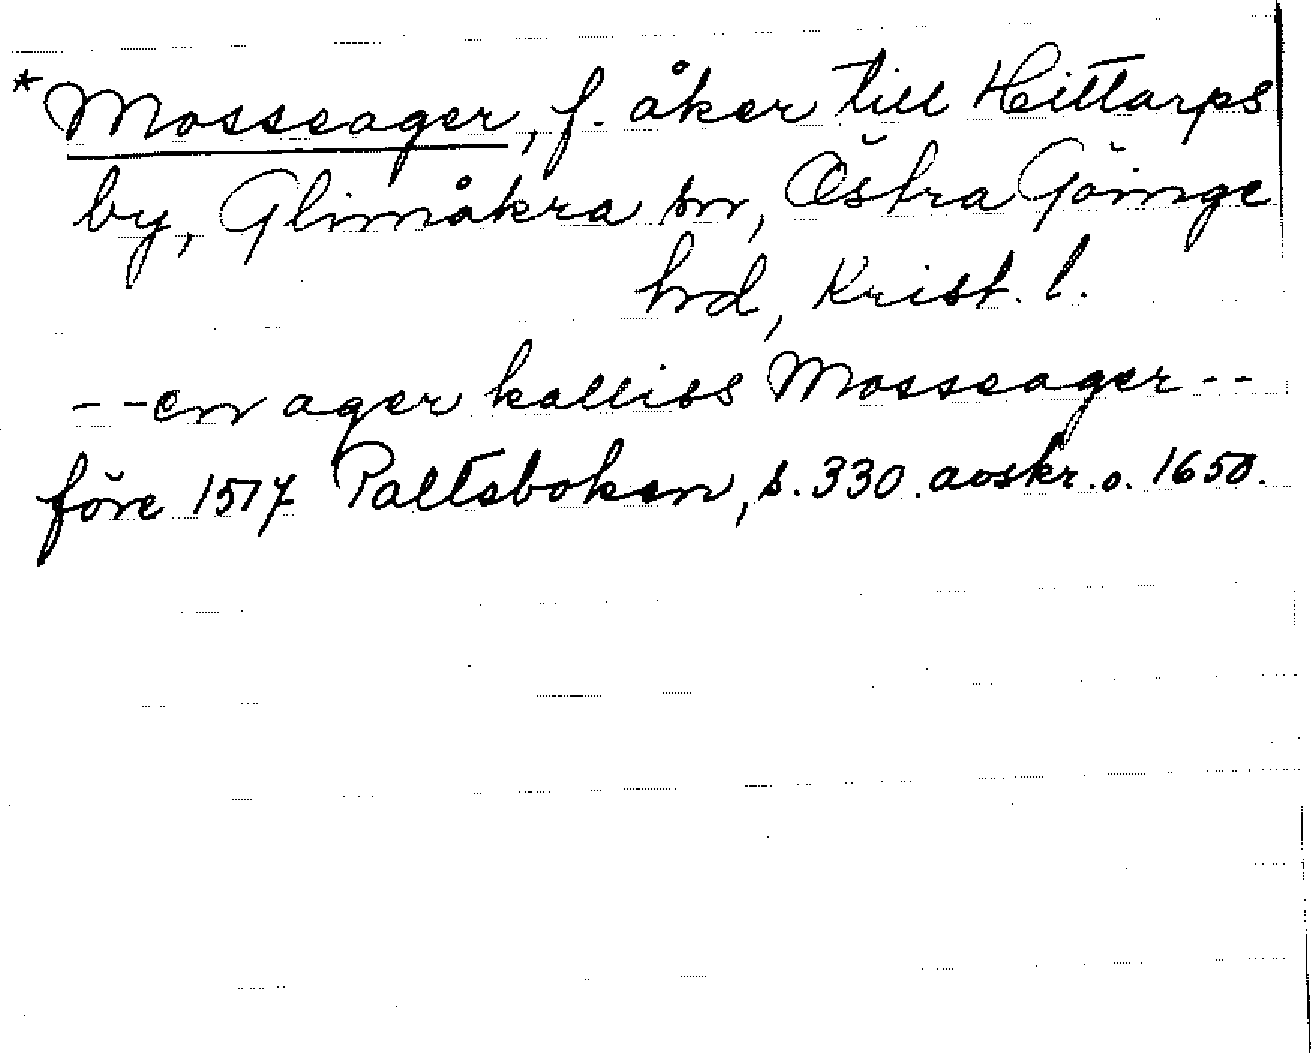 * Mosseager, f. åker till Hittarps
by, Glimåkra sn, Östra Göinge
hrd, Krist. l.
- - en ager kalliss Mosseager - -
före 1517 Paltsboken, s. 330. avskr. o. 1650.